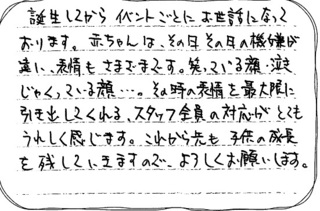 誕生してから イベントごとに お世話になって
おります。赤ちゃんは、その日 その日の機嫌が
違い、表情も さまざまです。笑っている顔・泣き
じゃくっている顔…。その時の表情を最大限に
引き出してくれる、スタッフ全員の対応が とても
うれしく感じます。これから先も 子供の成長
を残していきますので、よろしくお願いします。